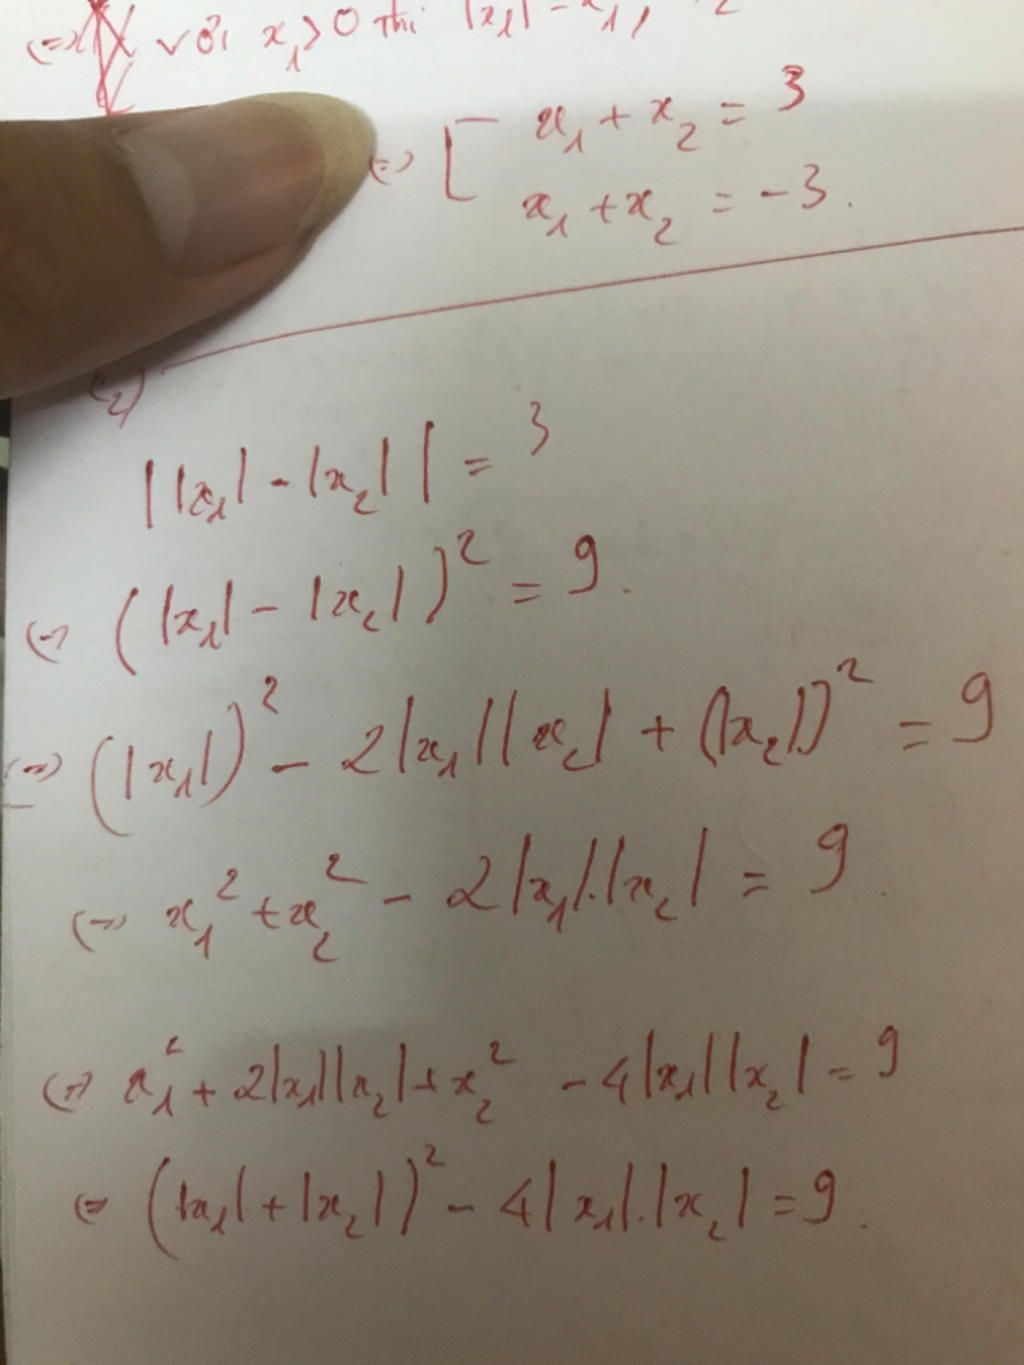 (=) với x₁ > 0 thì |x₁| = x₁,
(=) [ x₁ + x₂ = 3
x₁ + x₂ = -3.
(2)
| |x₁| - |x₂| | = 3
(=) (|x₁| - |x₂|)² = 9.
(=) (|x₁|)² - 2|x₁||x₂| + (|x₂|)² = 9
(=) x₁² + x₂² - 2|x₁|.|x₂| = 9.
(=) x₁² + 2|x₁||x₂| + x₂² - 4|x₁||x₂| = 9
(=) (|x₁| + |x₂|)² - 4|x₁|.|x₂| = 9.